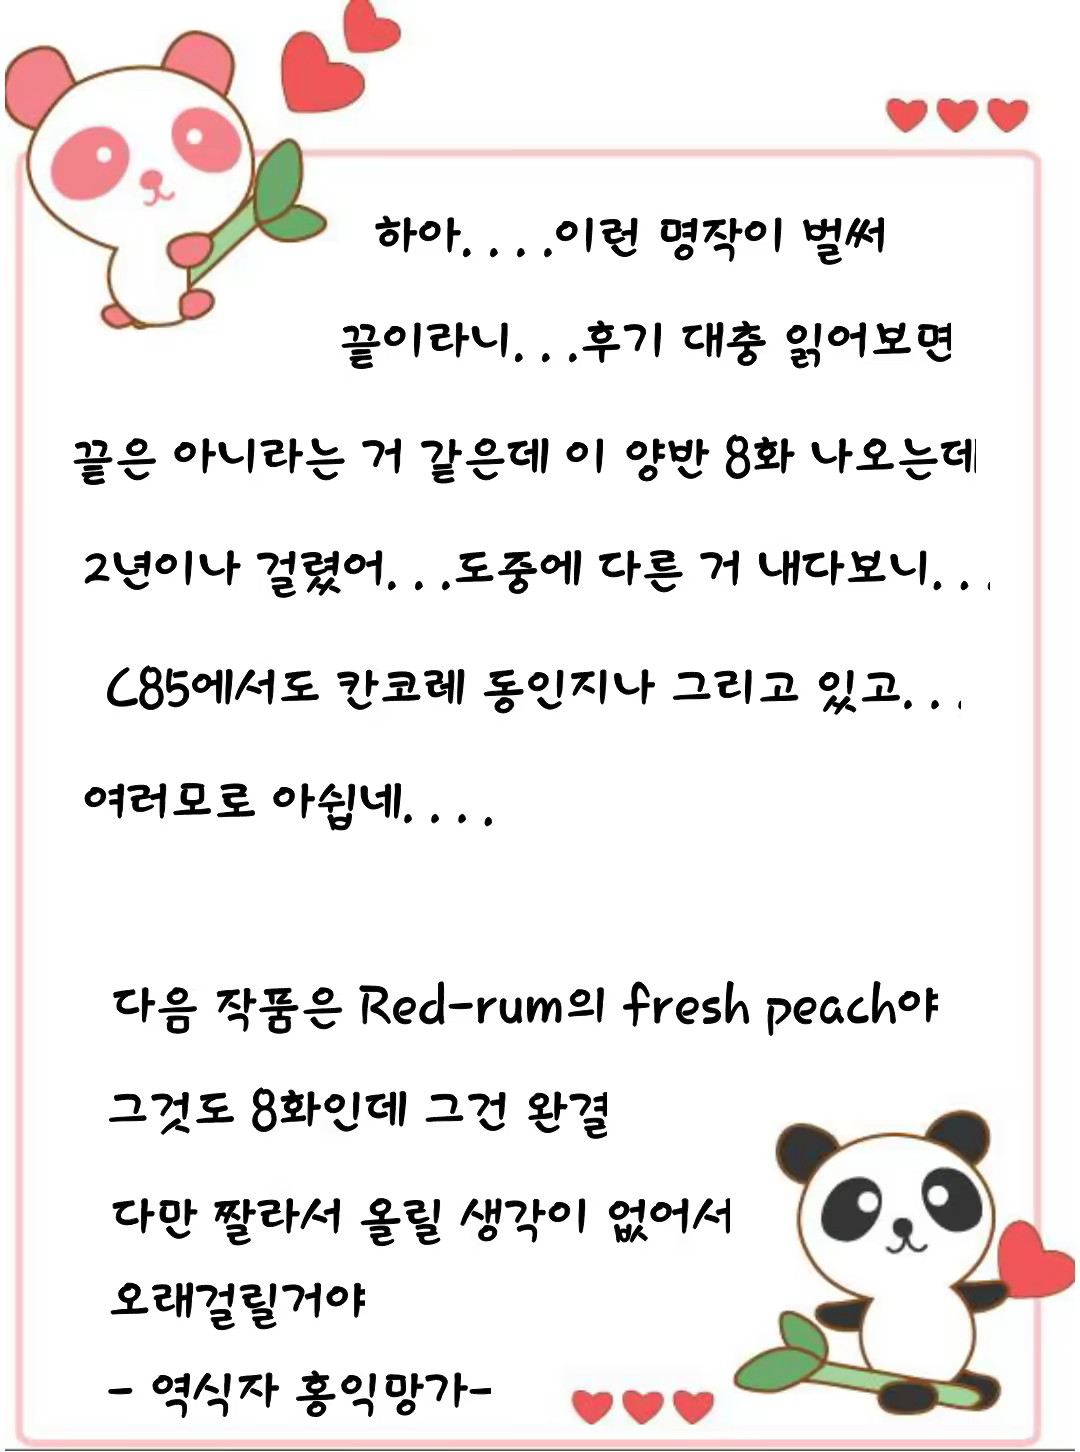 하아....이런 명작이 벌써
끝이라니...후기 대충 읽어보면
끝은 아니라는 거 같은데 이 양반 8화 나오는데
2년이나 걸렸어...도중에 다른 거 내다보니...
C85에서도 칸코레 동인지나 그리고 있고...
여러모로 아쉽네....
다음 작품은 Red-rum의 fresh peach야
그것도 8화인데 그건 완결
다만 짤라서 올릴 생각이 없어서
오래걸릴거야
- 역식자 홍익망가-